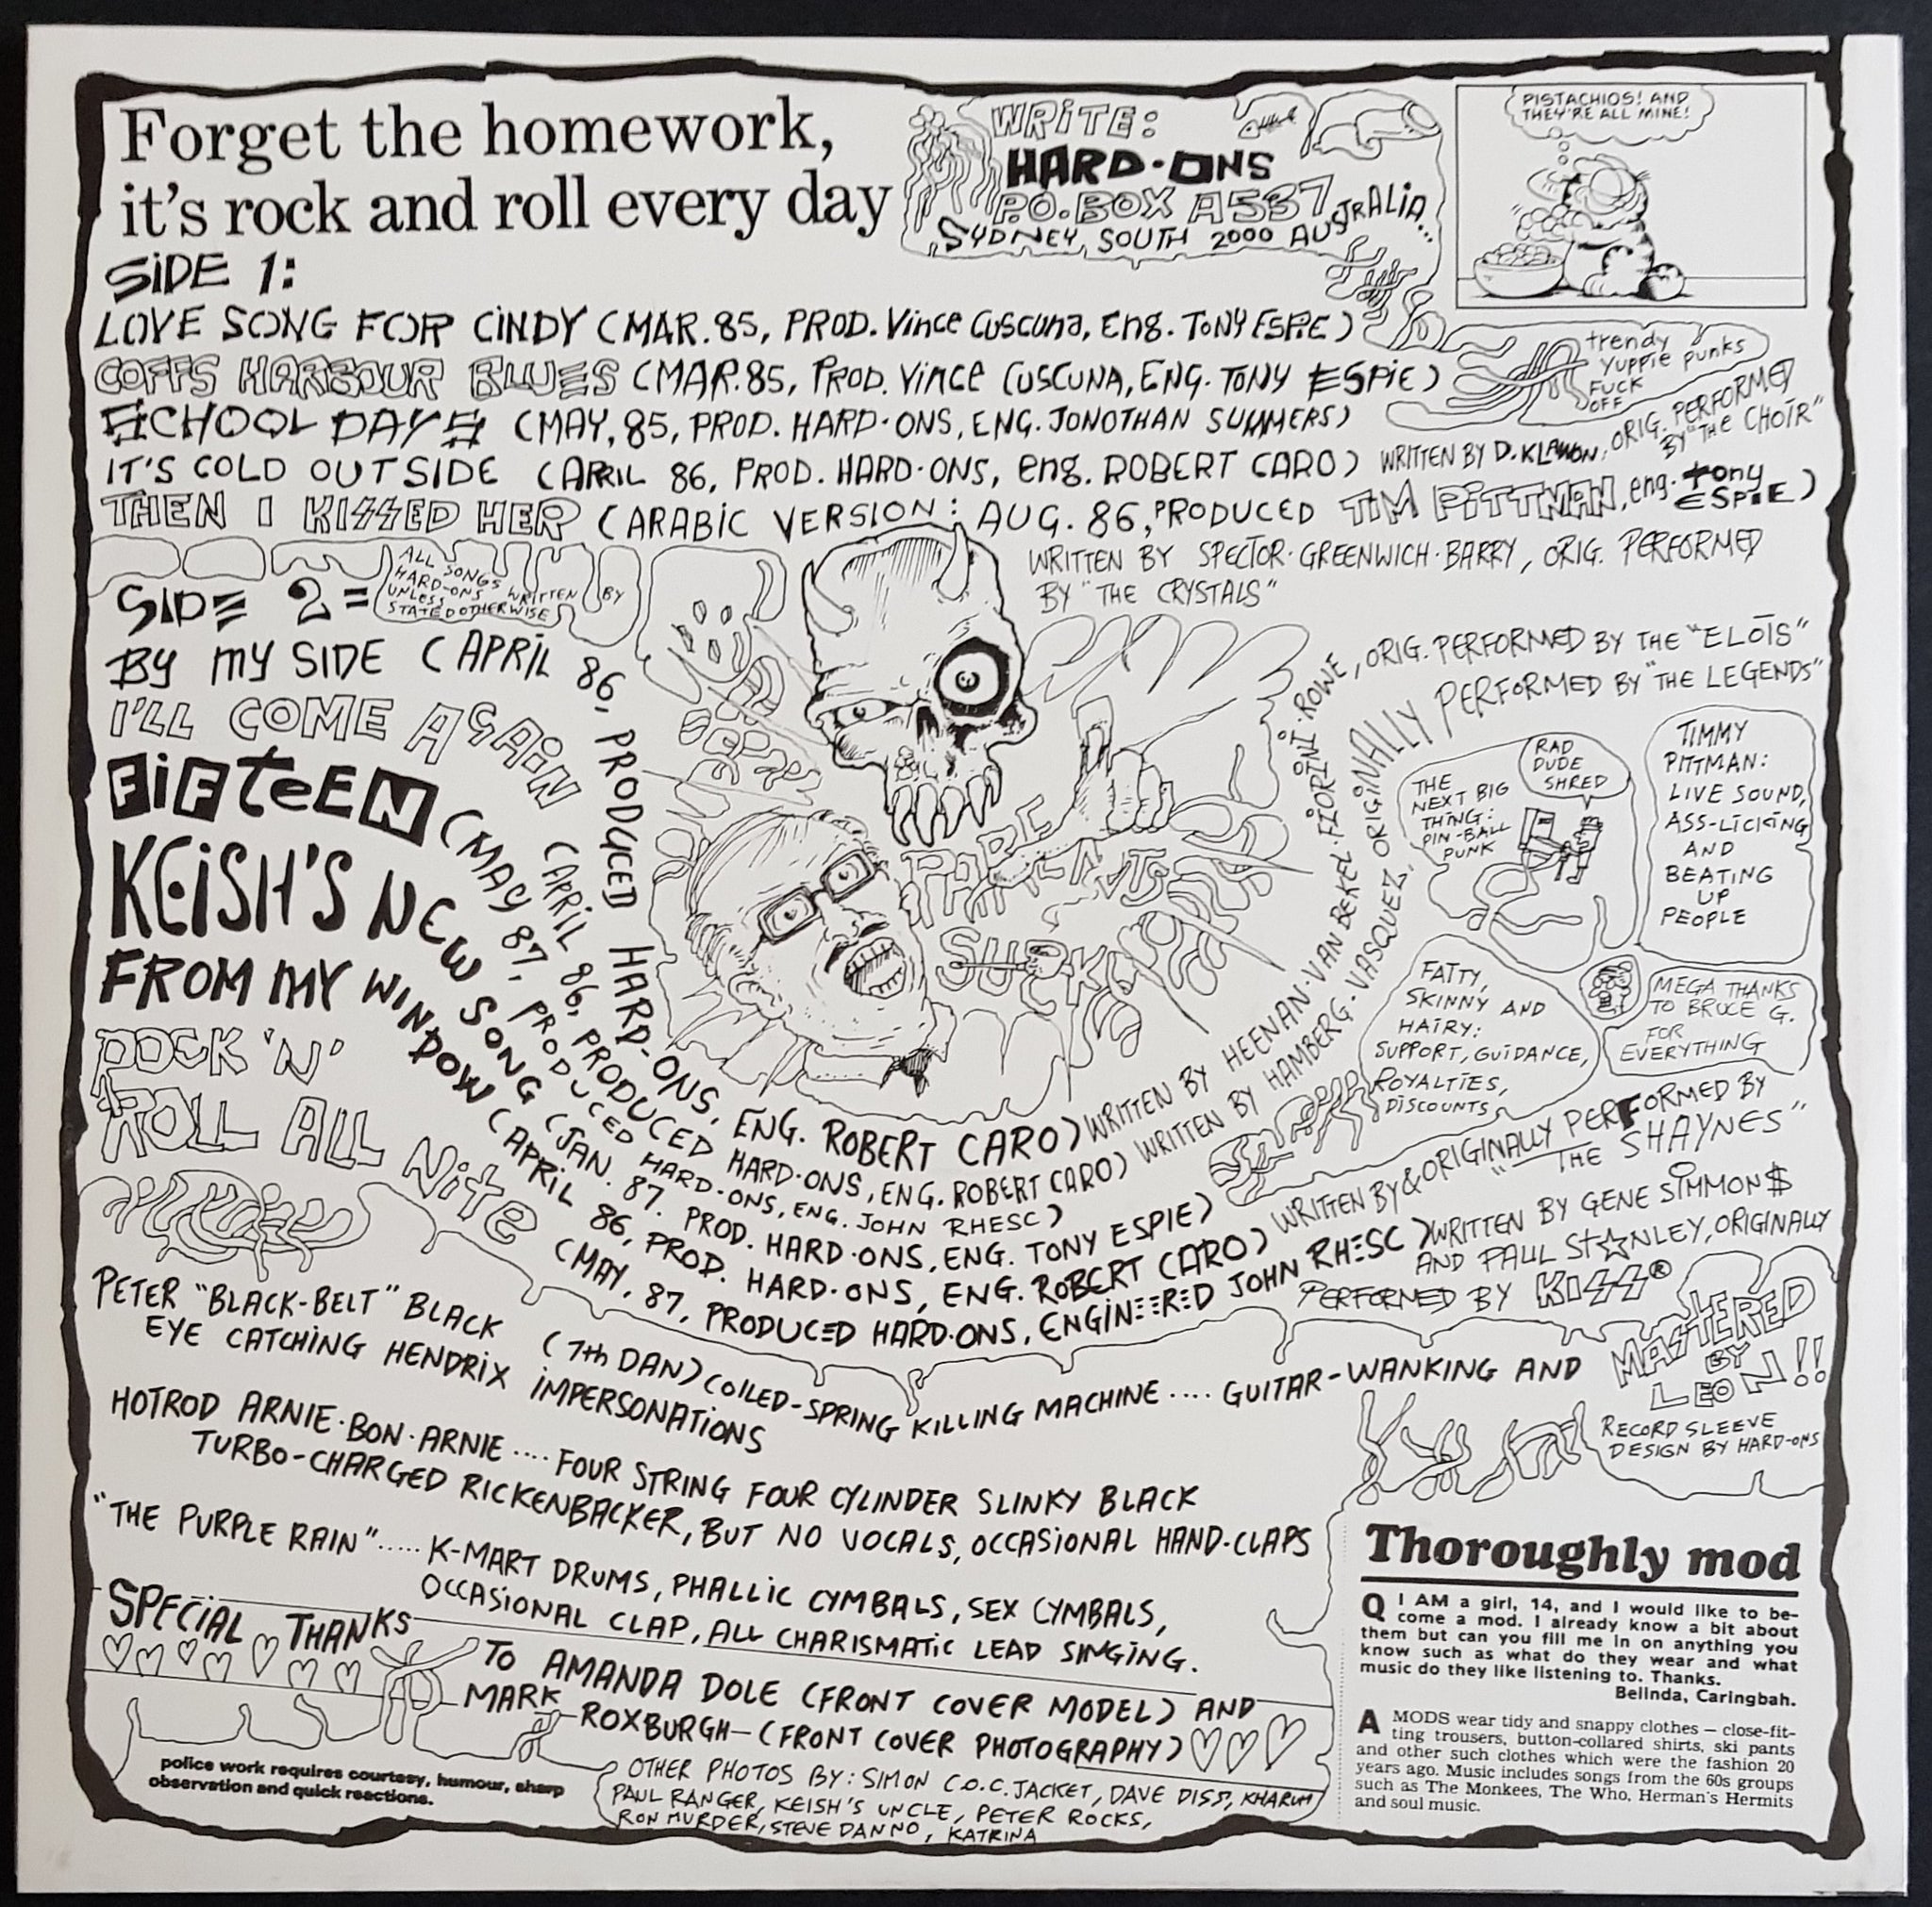 Forget the homework,
it's rock and roll every day
WRITE:
HARD-ONS
P.O. BOX A537
SYDNEY SOUTH 2000 AUSTRALIA...
PISTACHIOS! AND
THEY'RE ALL MINE!
SIDE 1:
LOVE SONG FOR CINDY (MAR. 85, PROD. Vince Cuscuna, Eng. TONY ESPIE)
COFFS HARBOUR BLUES (MAR. 85, PROD. Vince CUSCUNA, ENG. TONY ESPIE)
SCHOOL DAYS (MAY, 85, PROD. HARD-ONS, ENG. JONOTHAN SUMMERS)
IT'S COLD OUTSIDE (APRIL 86, PROD. HARD-ONS, eng. ROBERT CARO) WRITTEN BY D. KLAWON, ORIG. PERFORMED
BY "THE CHOIR"
THEN I KISSED HER (ARABIC VERSION: AUG. 86, PRODUCED TIM PITTMAN, eng. tony
ESPIE)
WRITTEN BY SPECTOR·GREENWICH·BARRY, ORIG. PERFORMED
BY "THE CRYSTALS"
trendy
Yuppie punks
FUCK
OFF
SIDE 2=
ALL SONGS WRITTEN BY
HARD-ONS
UNLESS
STATED OTHERWISE
BY MY SIDE (APRIL 86, PRODUCED HARD-ONS, ENG. ROBERT CARO) WRITTEN BY HEENAN·VAN BEKEL·FIORINI·ROWE, ORIG. PERFORMED BY THE "ELOIS"
I'LL COME AGAIN (APRIL 86, PRODUCED HARD-ONS, ENG. ROBERT CARO) WRITTEN BY HAMBERG·VASQUEZ, ORIGINALLY PERFORMED BY "THE LEGENDS"
FIFTEEN (MAY 87, PRODUCED HARD-ONS, ENG. JOHN RHESC)
KEISH'S NEW SONG (JAN. 87. PROD. HARD-ONS, ENG. TONY ESPIE)
FROM MY WINDOW (APRIL 86, PROD. HARD-ONS, ENG. ROBERT CARO) WRITTEN BY & ORIGINALLY PERFORMED BY
"THE SHAYNES"
ROCK 'N'
ROLL ALL NITE (MAY, 87, PRODUCED HARD-ONS, ENGINEERED JOHN RHESC) WRITTEN BY GENE SIMMON$
AND PAUL ST☆NLEY, ORIGINALLY
PERFORMED BY KISS®
PARENTS
SUCK
RAD
DUDE
SHRED
THE
NEXT BIG
THING:
PIN-BALL
PUNK
TIMMY
PITTMAN:
LIVE SOUND,
ASS-LICKING
AND
BEATING
UP
PEOPLE
FATTY,
SKINNY AND
HAIRY:
SUPPORT, GUIDANCE,
ROYALTIES,
DISCOUNTS
MEGA THANKS
TO BRUCE G.
FOR
EVERYTHING
PETER "BLACK-BELT" BLACK (7th DAN) COILED-SPRING KILLING MACHINE.... GUITAR-WANKING AND
EYE CATCHING HENDRIX IMPERSONATIONS
HOTROD ARNIE·BON·ARNIE.... FOUR STRING FOUR CYLINDER SLINKY BLACK
TURBO-CHARGED RICKENBACKER, BUT NO VOCALS, OCCASIONAL HAND-CLAPS
"THE PURPLE RAIN"..... K-MART DRUMS, PHALLIC CYMBALS, SEX CYMBALS,
OCCASIONAL CLAP, ALL CHARISMATIC LEAD SINGING.
MASTERED
BY
LEON!!
RECORD SLEEVE
DESIGN BY HARD-ONS
SPECIAL THANKS
TO AMANDA DOLE (FRONT COVER MODEL) AND
MARK ROXBURGH — (FRONT COVER PHOTOGRAPHY)
OTHER PHOTOS BY: SIMON C.O.C. JACKET, DAVE DISS, KHARUM
PAUL RANGER, KEISH'S UNCLE, PETER ROCKS,
RON MURDER, STEVE DANNO, KATRINA
police work requires courtesy, humour, sharp
observation and quick reactions.
Thoroughly mod
Q I AM a girl, 14, and I would like to be-
come a mod. I already know a bit about
them but can you fill me in on anything you
know such as what do they wear and what
music do they like listening to. Thanks.
Belinda, Caringbah.
A MODS wear tidy and snappy clothes — close-fit-
ting trousers, button-collared shirts, ski pants
and other such clothes which were the fashion 20
years ago. Music includes songs from the 60s groups
such as The Monkees, The Who, Herman's Hermits
and soul music.